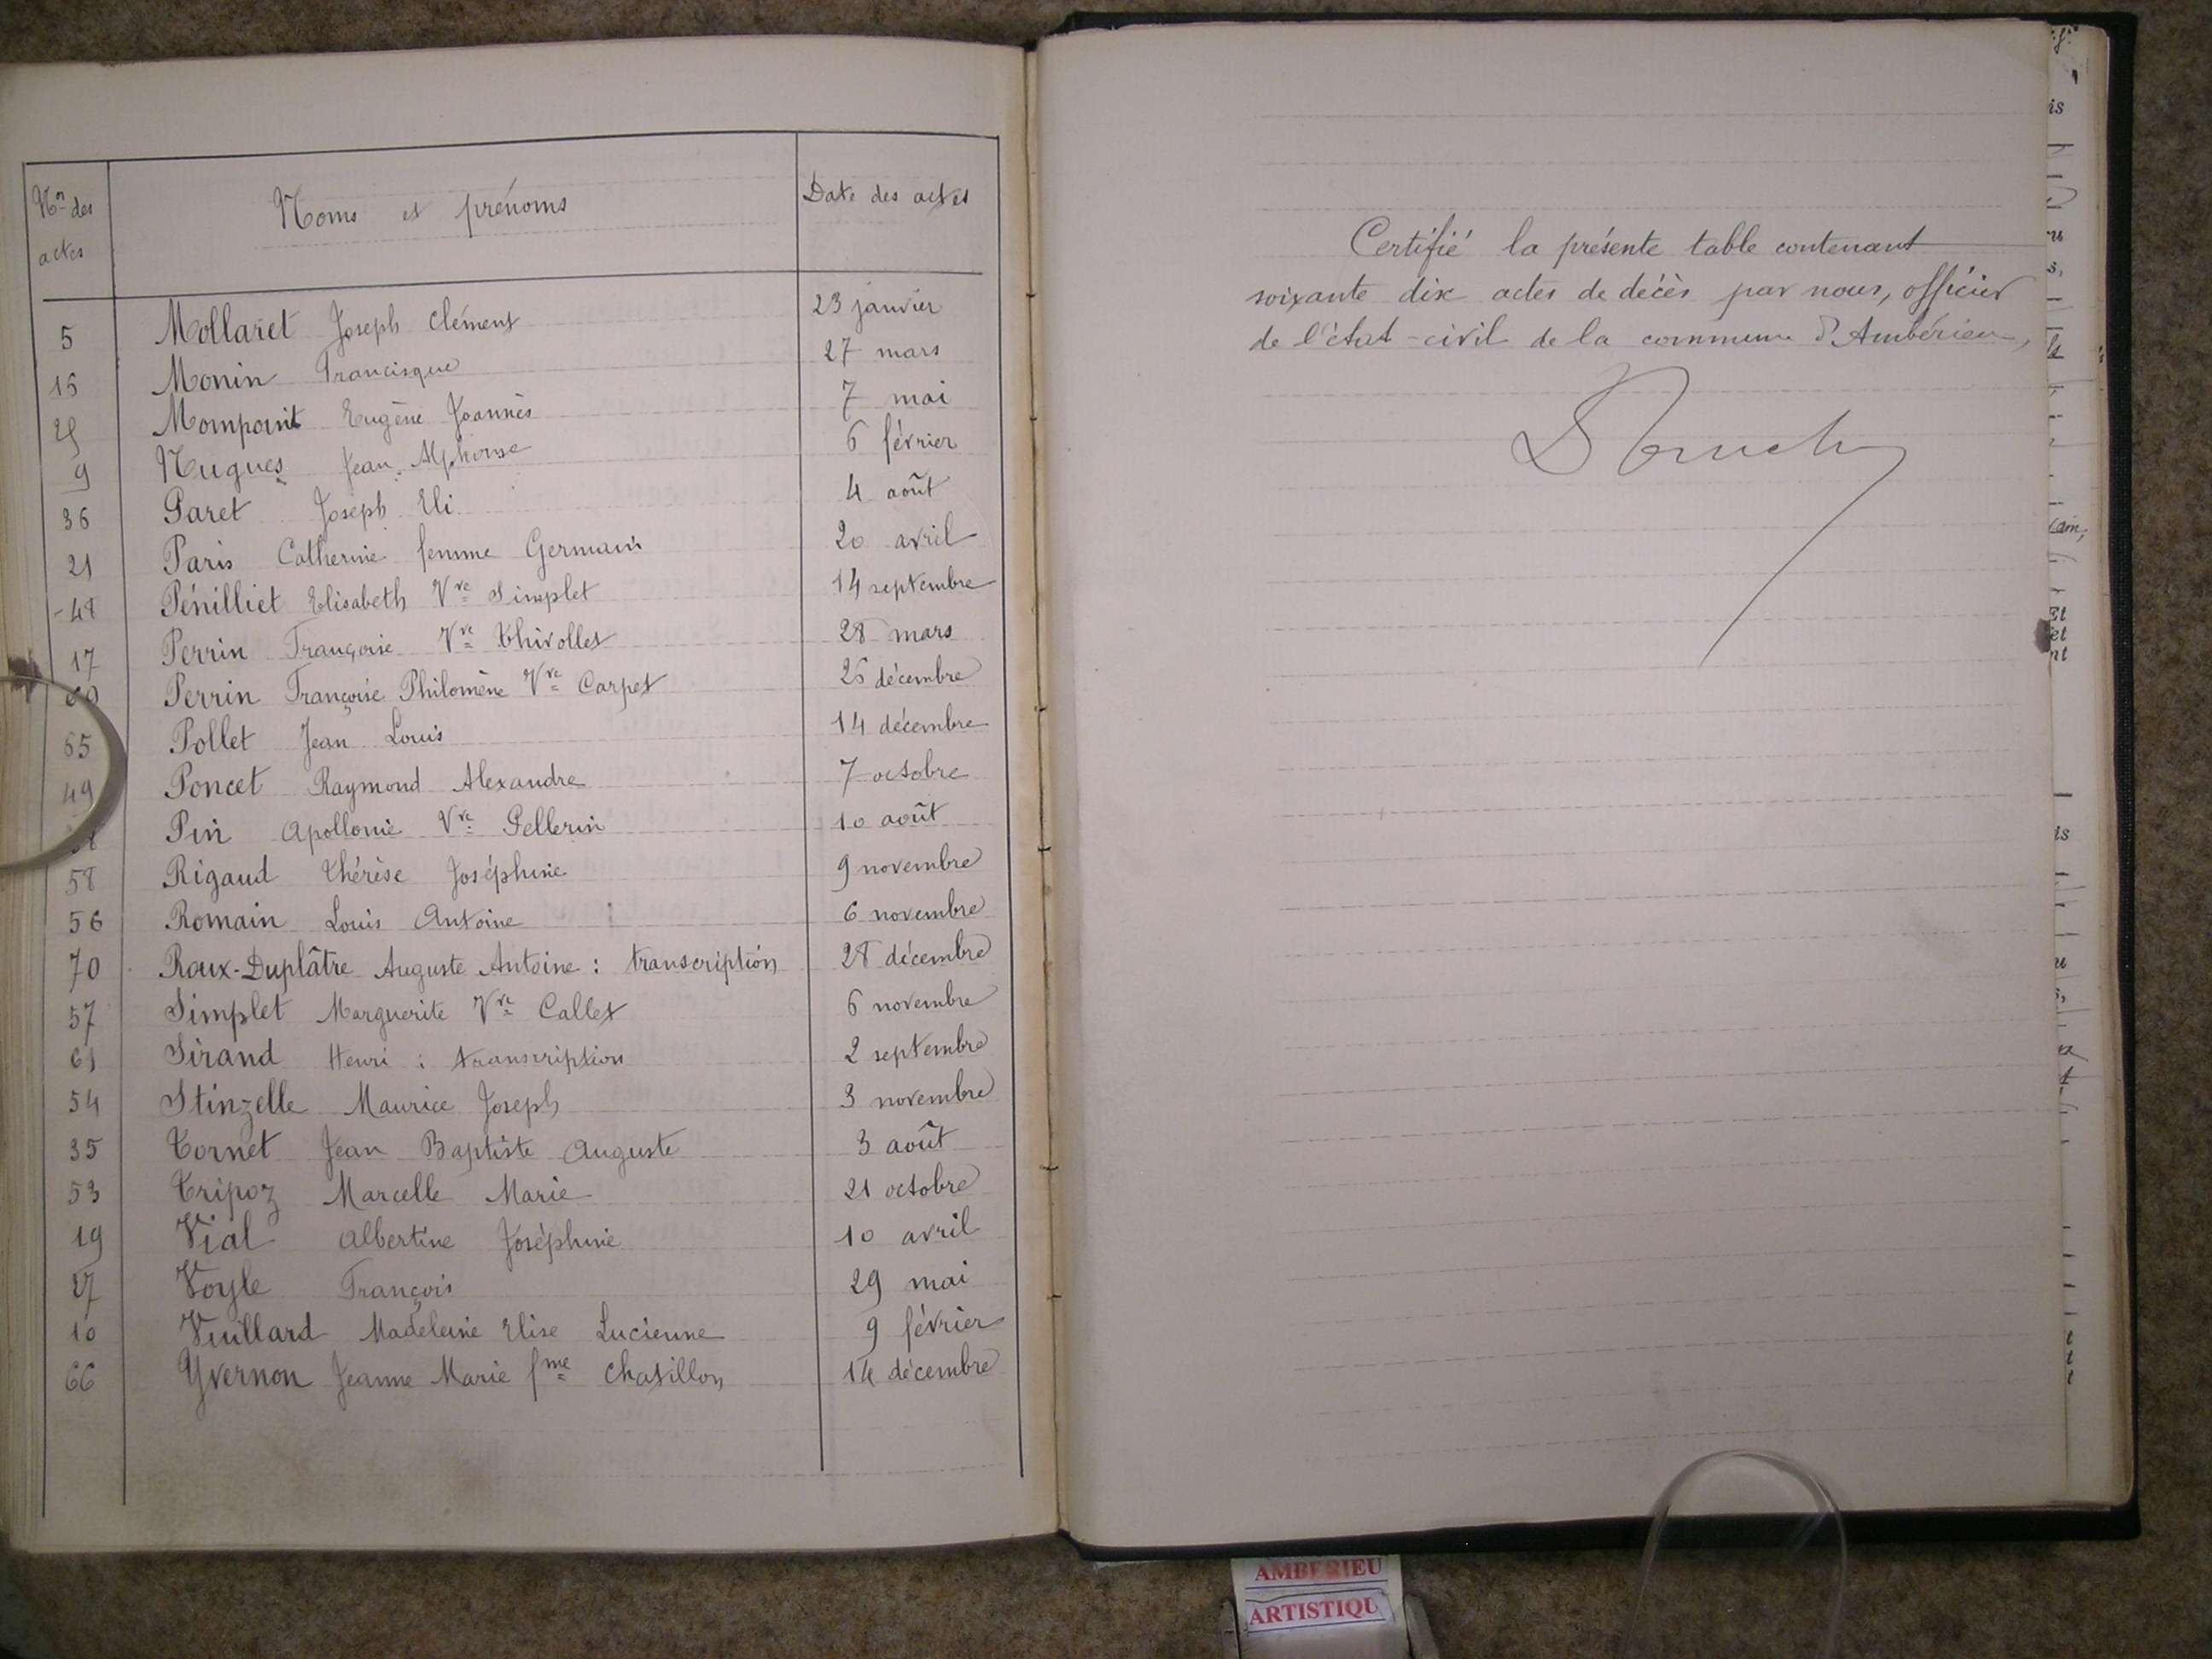 Nos des actes Noms et prénoms Date des actes
5 Mollaret Joseph Clément 23 janvier
16 Monin Francisque 27 mars
25 Mompoint Eugène Joannès 7 mai
9 Nugues Jean Alphonse 6 février
36 Paret Joseph Eli 4 août
21 Paris Catherine femme Germain 20 avril
-48 Pénilliet Elisabeth Vve Simplet 14 septembre
17 Perrin Françoise Vve Thivollet 28 mars
Perrin Françoise Philomène Vve Carpet 26 décembre
65 Pollet Jean Louis 14 décembre
49 Poncet Raymond Alexandre 7 octobre
Pin Apollonie Vve Pellerin 10 août
58 Rigaud Thérèse Joséphine 9 novembre
56 Romain Louis Antoine 6 novembre
70 Roux-Duplâtre Auguste Antoine : transcription 28 décembre
57 Simplet Marguerite Vve Callet 6 novembre
61 Sirand Henri : transcription 2 septembre
54 Stinzelle Maurice Joseph 3 novembre
35 Tornet Jean Baptiste Auguste 3 août
53 Tripoz Marcelle Marie 21 octobre
19 Vial Albertine Joséphine 10 avril
27 Voyle François 29 mai
10 Vuillard Madeleine Elise Lucienne 9 février
66 Yvernon Jeanne Marie fme Chatillon 14 décembre
Certifié la présente table contenant
soixante dix actes de décès par nous, officier
de l'état-civil de la commune d'Ambérieu,
AMBERIEU
ARTISTIQU